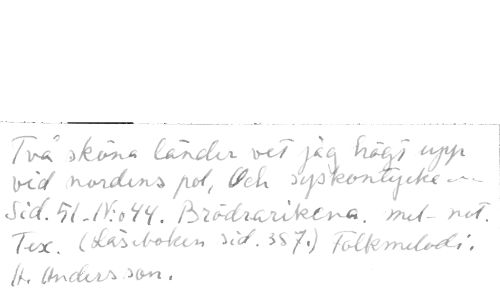 Två sköna länder vet jag högt upp
vid nordens pol, Och syskontycke —
Sid. 51. N:o 44. Brödrarikena. mel- not.
Tex. (Läseboken sid. 387.) Folkmelodi.
A. Andersson.